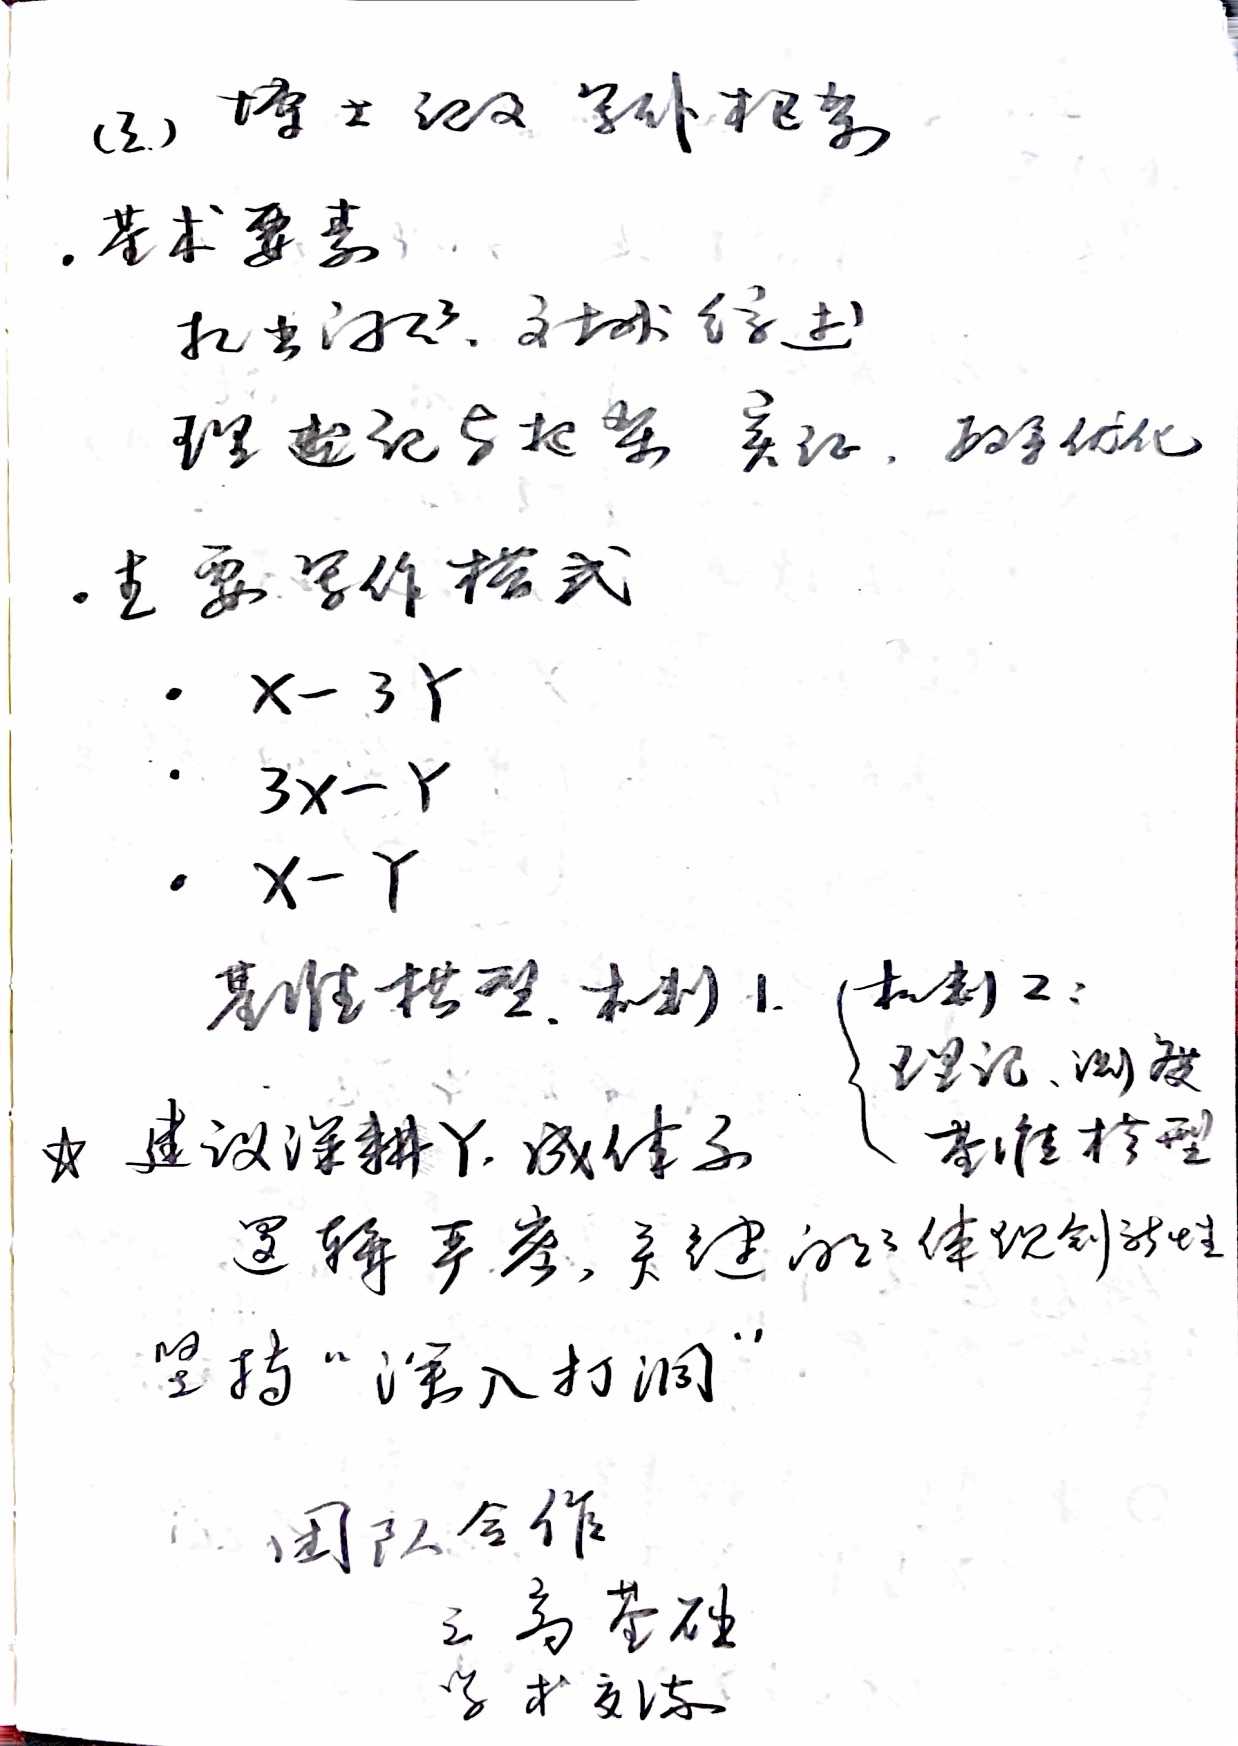 (三) 博士论文写作框架
· 基本要素
提出问题、文献综述
理论与框架 实证、政策优化
· 主要写作模式
· X-3Y
· 3X-Y
· X-Y
基准模型、机制1. { 机制2:
理论、测度
基准模型
☆ 建议深耕Y, 成体系
逻辑严密, 关键问题体现创新性
坚持“深入打洞”
团队合作
三高基础
学术交流